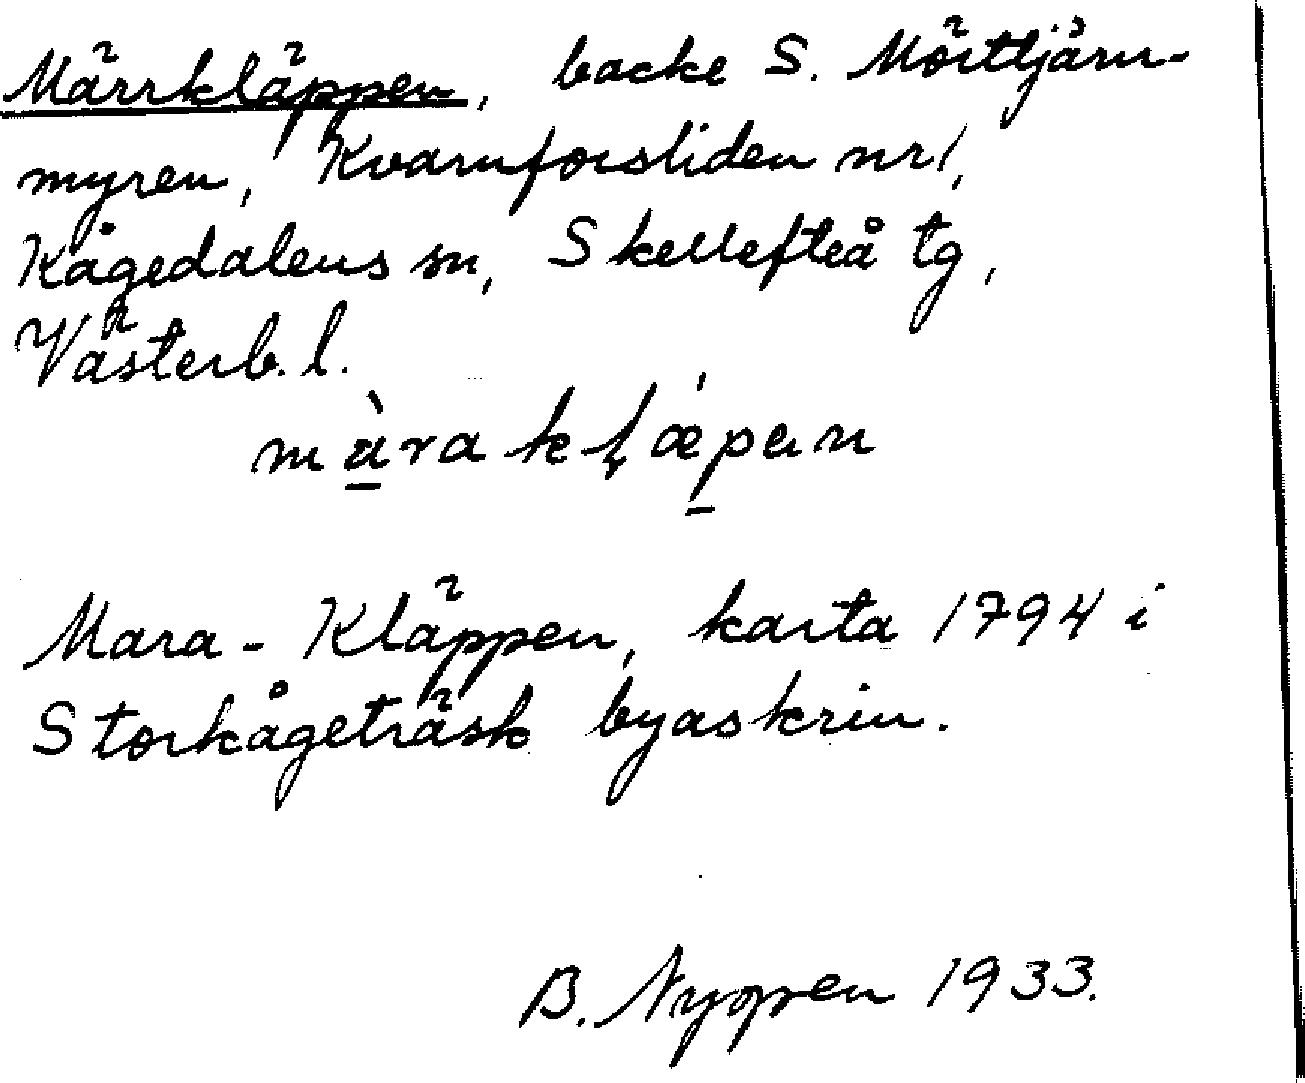 Märrkläppen, backe S. Mörttjärn-
myren, Kvarnforsliden nr 1,
Kågedalens sn, Skellefteå tg,
Västerb. l.
Mara-Kläppen, karta 1794 i
Storkågeträsk byaskrin.
B. Nygren 1933.